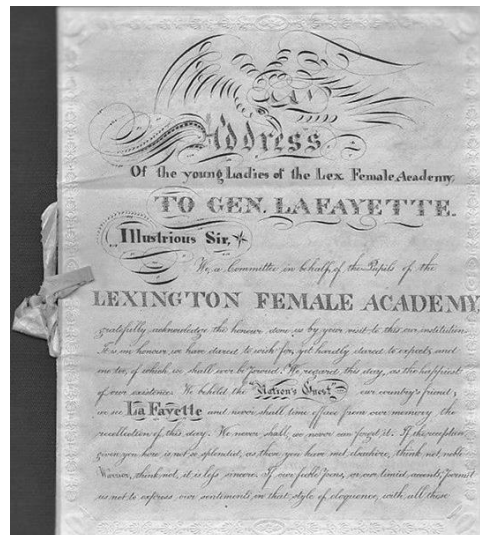 Address
Of the young Ladies of the Lex Female Academy,
TO GEN. LAFAYETTE.
Illustrious Sir,
We, a Committee in behalf, of the Pupils of the
LEXINGTON FEMALE ACADEMY,
gratefully acknowledge the honour done us by your visit to this our institution.
It is an honour, we have dared to wish for, yet hardly dared to expect, and
one too, of which, we shall ever be proud. We regard this day, as the happiest
of our existence. We behold the "Nation's Guest" our country's friend;
we see La Fayette and never shall time efface from our memory the
recollection of this day. We never shall, we never can forget it. If the reception
given you here is not so splendid, as those you have met elsewhere, think not, noble
Warrior, think not, it is less sincere. If our feeble pens, or our timid accents, permit
us not to express our sentiments, in that style of eloquence, with all those